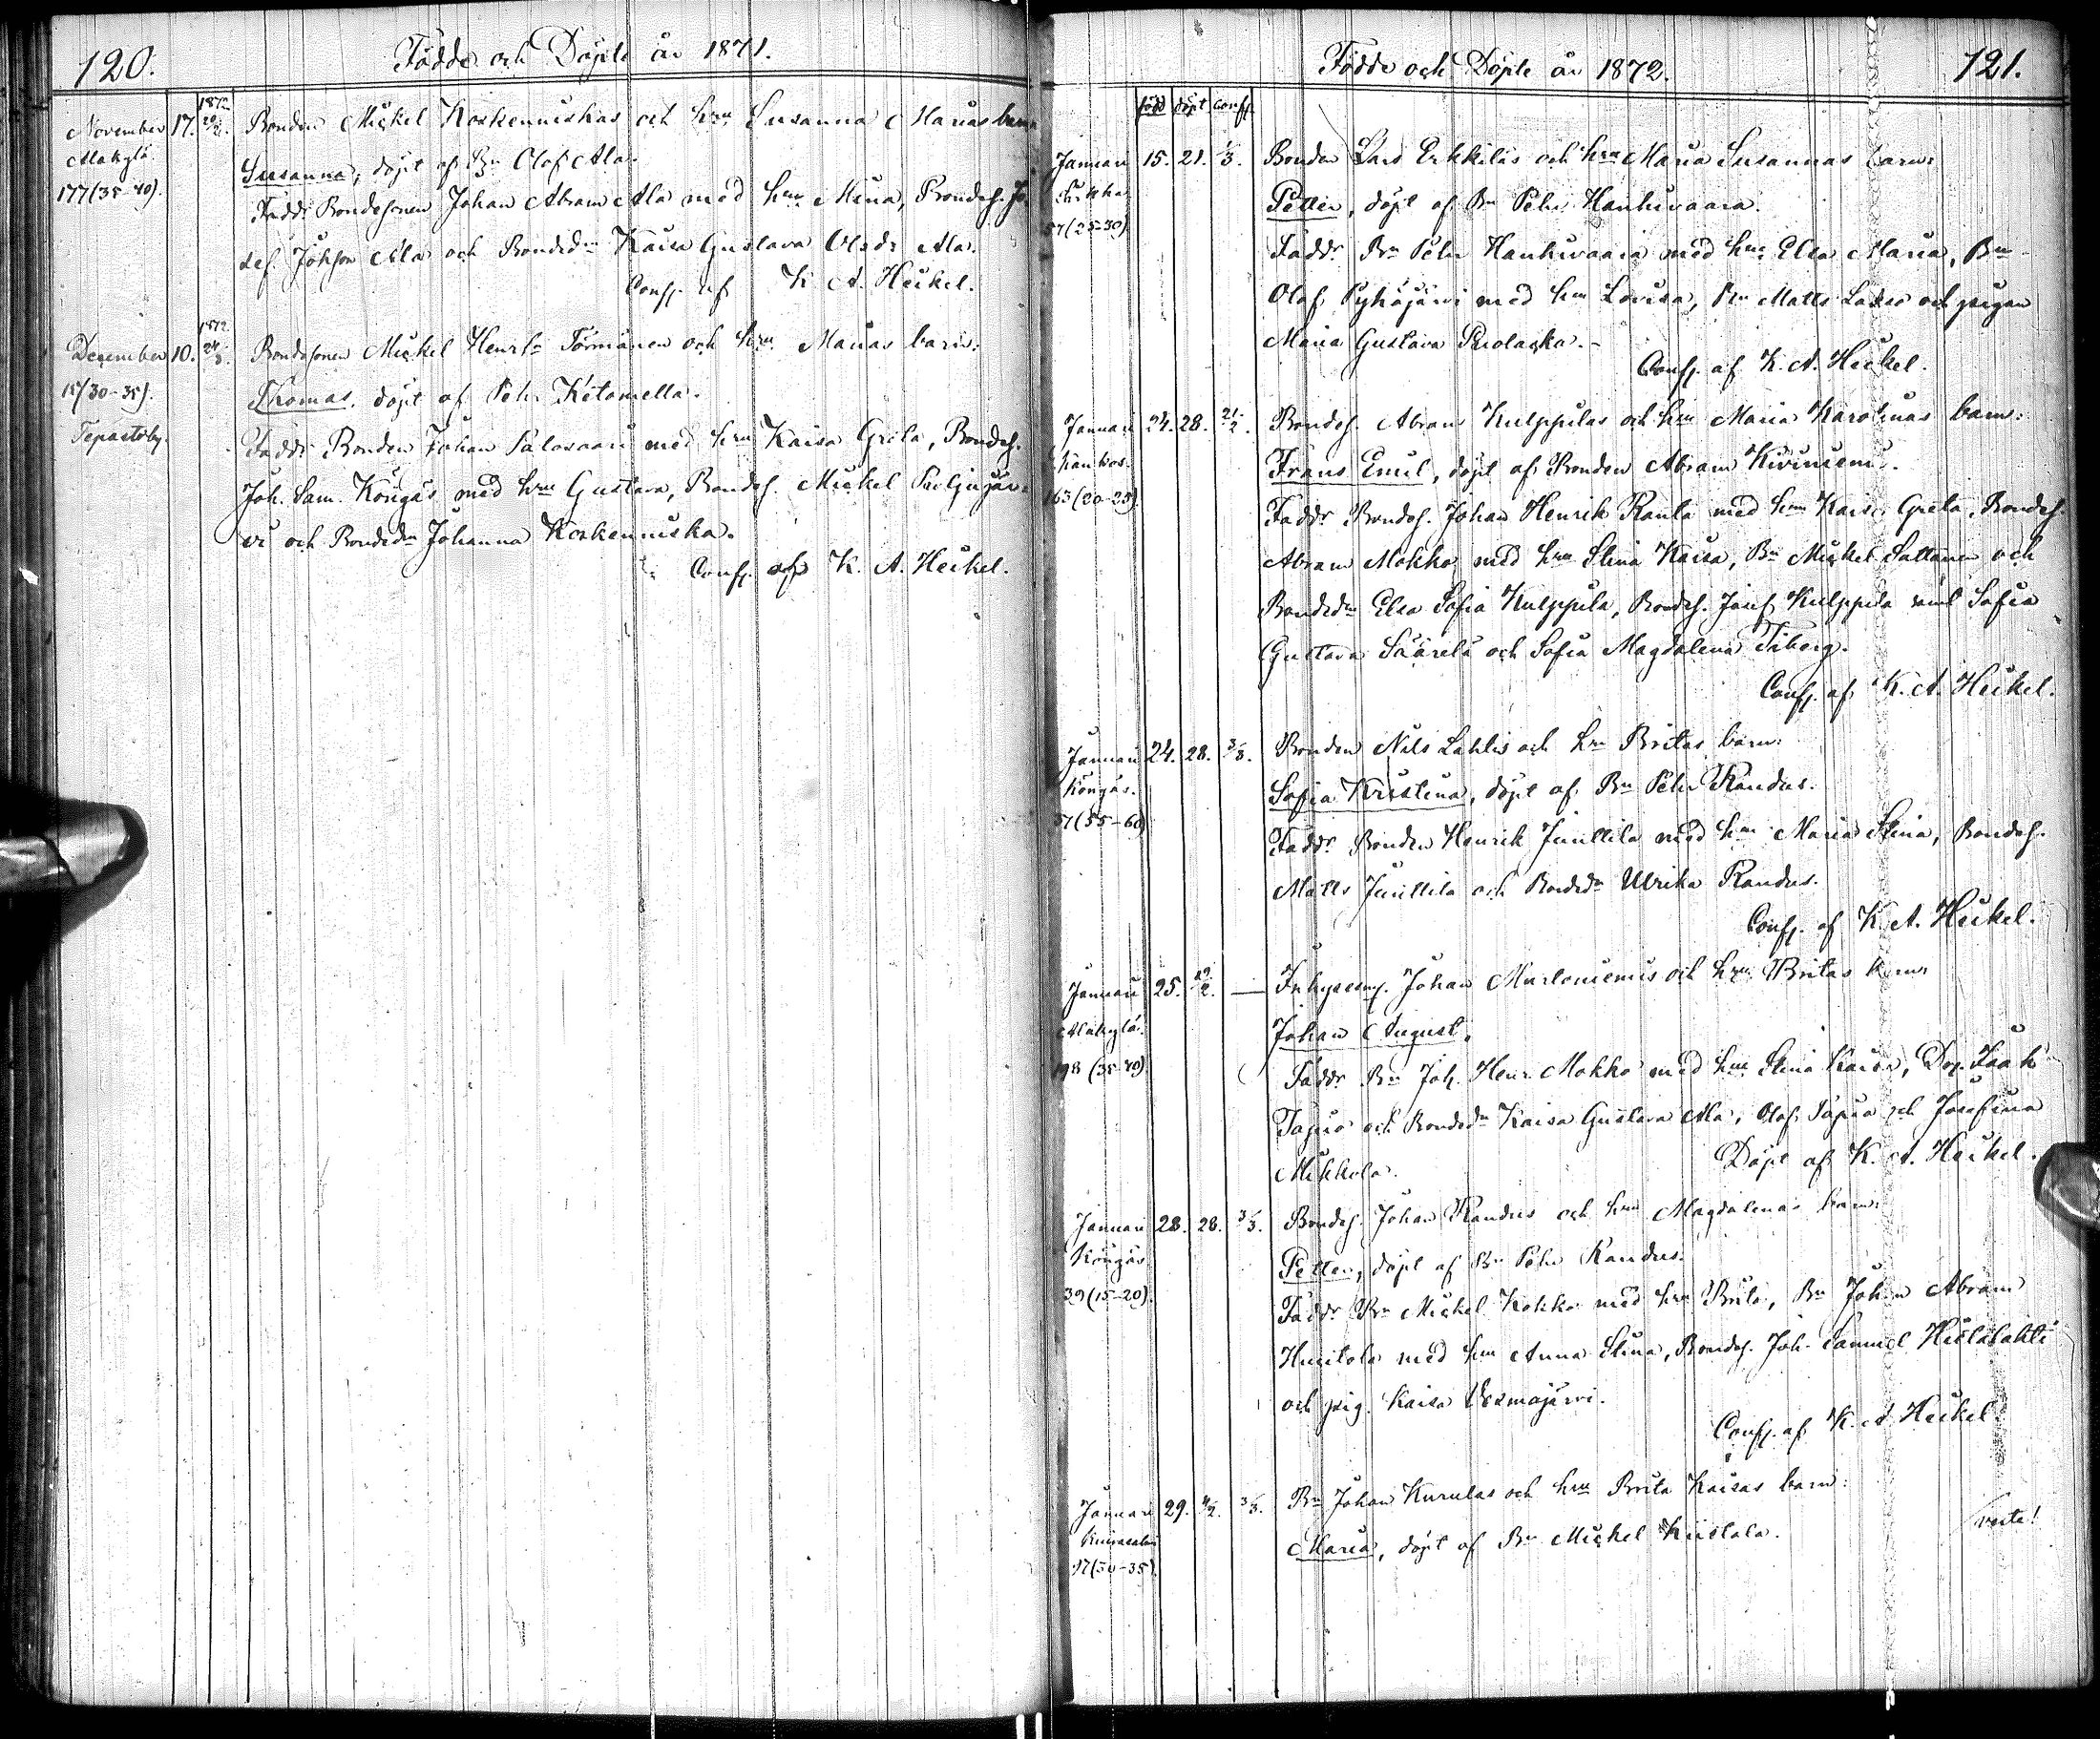 120.
Födde och Döpte år 1871.
November 17. 1872 20/2. Bonden Mickel Koskenniskas och hru Susanna Marias barn
Alakylä Susanna, döpt af Bn Olof Ala.
177 (35-40). Faddr Bondesonen Johan Abram Ala med hru Mina, Bondes. Jo-
sef Johsson Ala och Bondedn Kaisa Gustava Olsdr Ala.
Conf. af K. A. Heikel.
December 10. 1872 24/3. Bondesonen Mickel Henrs Törmänen och hru Marias barn:
(30-35). Thomas, döpt af Pehr Ketomella.
Tepastoby. Faddr Bonden Johan Palovaari med hru Kaisa Greta, Bondes.
Joh. Sam. Köngäs med hru Gustava, Bondes. Mickel
vi och Bondedn Johanna Koskenniska.
Conf. af K. A. Heikel.
Födde och Döpte år 1872.
121.
född döpt Conf.
Januari 15. 21. 1/3. Bonden Lars Erkkiläs och hru Maria Susannas barn:
Sirkka Petter, döpt af Bn Pehr Hanhivaara.
57 (25-30) Faddr Bn Pehr Hanhivaara med hru Elsa Maria, Bn
Olof Pyhäjärvi med hru Lovisa, Bn Matts och pigan
Maria Gustava
Conf. af K. A. Heikel.
Januari 24. 28. 21/2. Bondes. Abram Kulppilas och hru Maria Karolinas barn:
Kaukos. Frans Emil, döpt af Bonden Abram Kiviniemi.
163 (20-25) Faddr Bondes. Johan Henrik Ranta med hru Kaisa Greta, Bondes.
Abram Mokko med hru Stina Kaisa, Bn Mickel Sattanen och
Bondedn Elsa Sofia Kulppila, Bondes. Josef Kulppila samt Sofia
Gustava Säärelä och Sofia Magdalena Tiberg.
Conf. af K. A. Heikel.
Januari 24. 28. 3/3. Bonden Nils Lahtis och hru Britas barn:
Köngäs. Sofia Kristina, döpt af Bn Pehr Kandus.
57 (55-60) Faddr Bonden Henrik Junttila med hru Maria Stina, Bondes.
Matts Junttila och Bondedn Ulrika Kandus.
Conf. af K. A. Heikel.
Januari 25. — Johan och hru Britas barn
Alakylä. Johan August,
198 (35-40) Faddr Bn Joh. Henr. Mokko med hru Stina Kaisa, Isak
Tapio och Bondedn Kaisa Gustava Ala, Olof Tapio och Josefina
Mikkola.
Döpt af K. A. Heikel.
Januari 28. 28. 3/3. Bondes. Johan Kandus och hru Magdalenas barn:
Köngäs Petter, döpt af Bn Pehr Kandus.
39 (15-20). Faddr Bn Mickel Kokko med hru Brita, Bn Johan Abram
Huitola med hru Anna Stina, Bondes. Joh. Samuel Hietalahti
och pig. Kaisa Vesmajärvi.
Conf. af K. A. Heikel
Januari 29. 4/2. 3/3. Bn Johan Kurulas och hru Brita Kaisas barn:
Maria, döpt af Bn Mickel Kiistala.
97 (30-35)
verte!